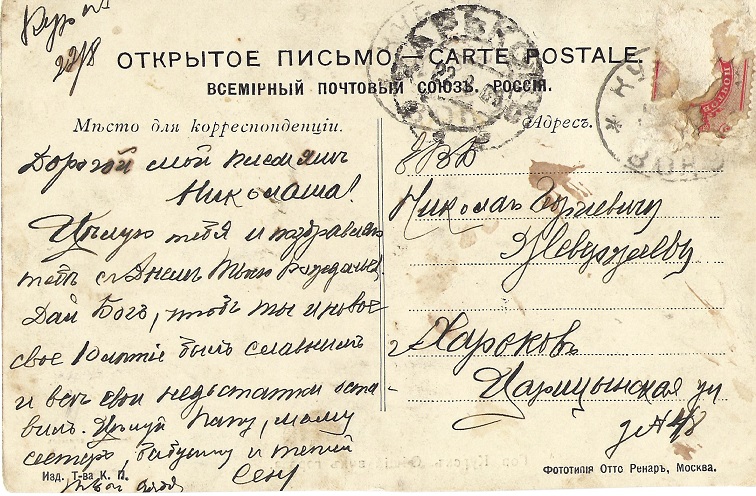 22/8
ОТКРЫТОЕ ПИСЬМО. — CARTE POSTALE.
ВСЕМІРНЫЙ ПОЧТОВЫЙ СОЮЗЪ. РОССІЯ.
Мѣсто для корреспонденціи.
Адресъ.
Дорогой мой
Николаша!
Цѣлую тебя и поздравляю
тебя съ Днемъ Твоего рожденія.
Дай Богъ, чтобъ ты и новое
свое 10лѣтіе былъ славнымъ
и всѣ свои недостатки оста
вилъ. Цѣлуй папу, маму
сестеръ, бабушку и тетей
Сеню
ЕВБ
Николаю
г Харьковъ
Царицынская ул
д № 48
Изд. Т-ва К. П.
Фототипія Отто Ренаръ, Москва.